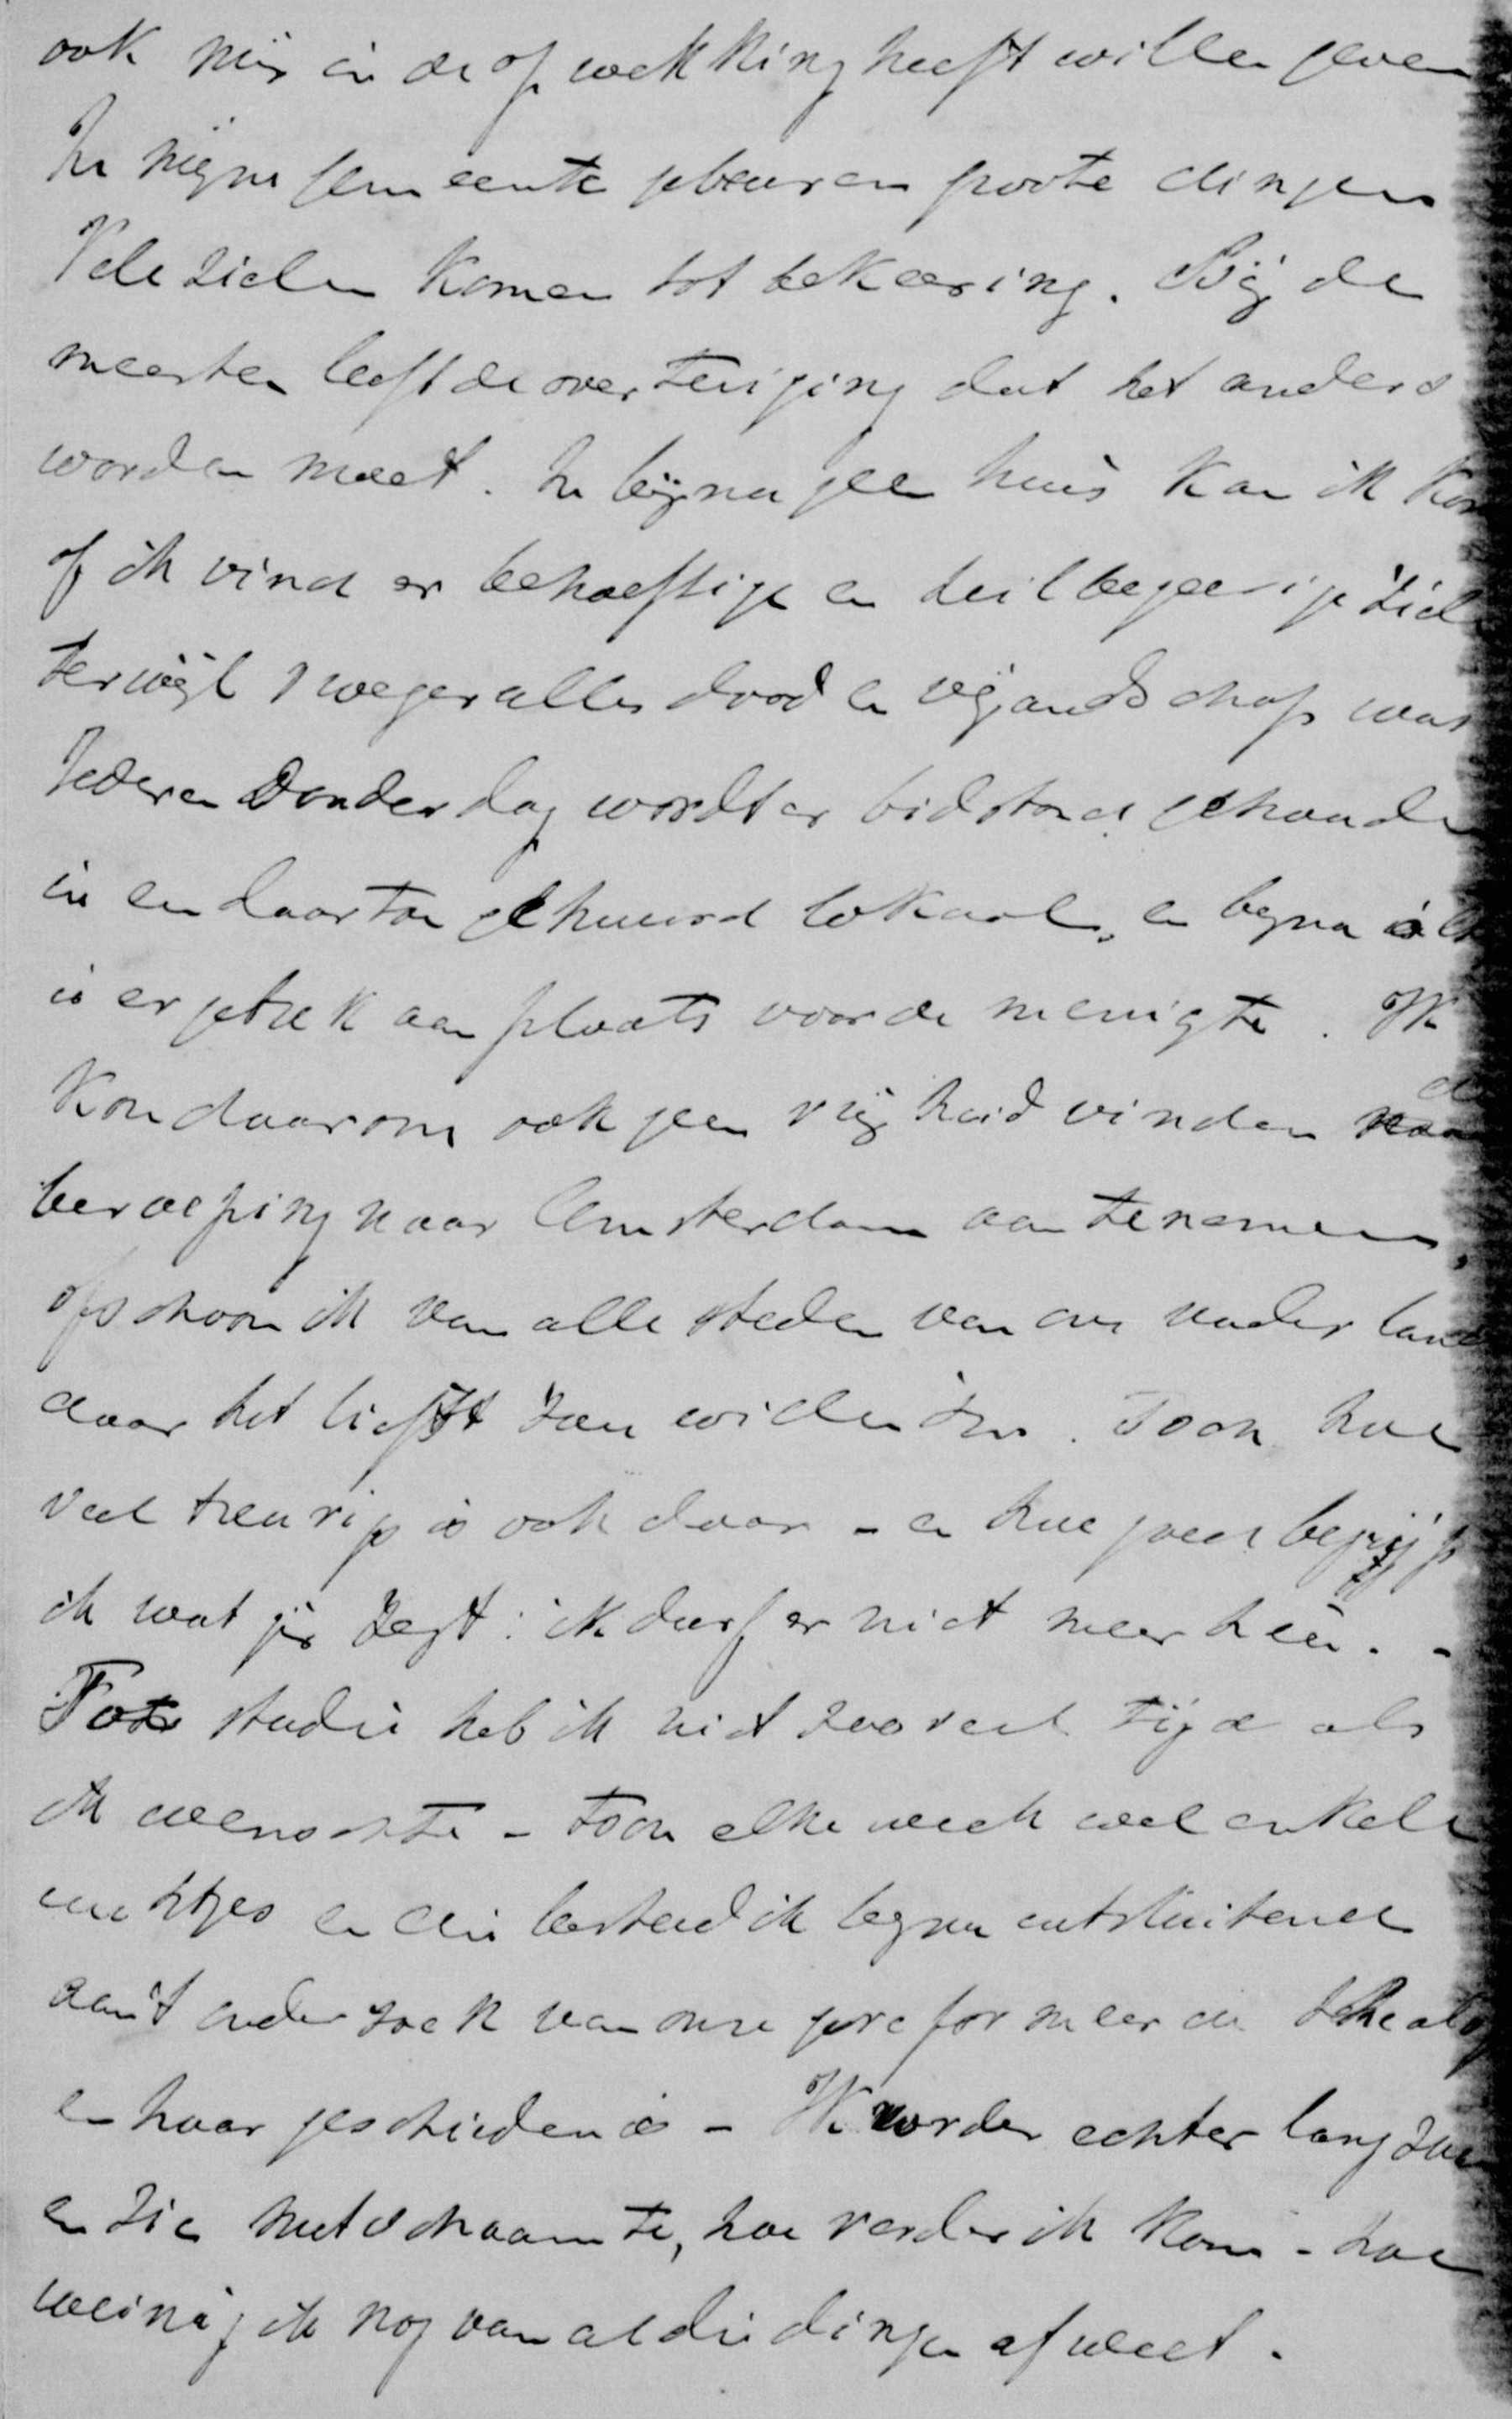 ook mij in de opwekking heeft willen geven
In mijne gemeente gebeuren groote dingen
Vele zielen komen tot bekeering. Bij de
meesten leeft de overtuiging dat het anders
worden moet. In bijna geen huis kan ik kom
of ik vind er behoeftige en heilbegeerige ziele
terwijl vroeger alles dood en vijandschap was
Iederen Donderdag wordt er bidstond gehoude
in een daartoe gehuurd lokaal, en bijna alt
is er gebrek aan plaats voor de menigte. Ik
kon daarom ook geen vrijheid vinden de
beroeping naar Amsterdam aan te nemen,
ofschoon ik van alle steden van ons vaderland
daar het liefst zou willen zijn. Toch hoe
veel treurigs is ook daar - en hoe goed begrijp
ik wat gij zegt: ik durf er niet meer heen. -
Tot studie heb ik niet zooveel tijd als
ik wenschte - toch elke week wel enkele
uurtjes en die besteed ik bijna uitsluitend
aan 't onderzoek van onze gereformeerde theolog
en haar geschiedenis - Ik vorder echter langzaam
en zie met schaamte, hoe verder ik kom - hoe
weinig ik nog van al die dingen afweet.